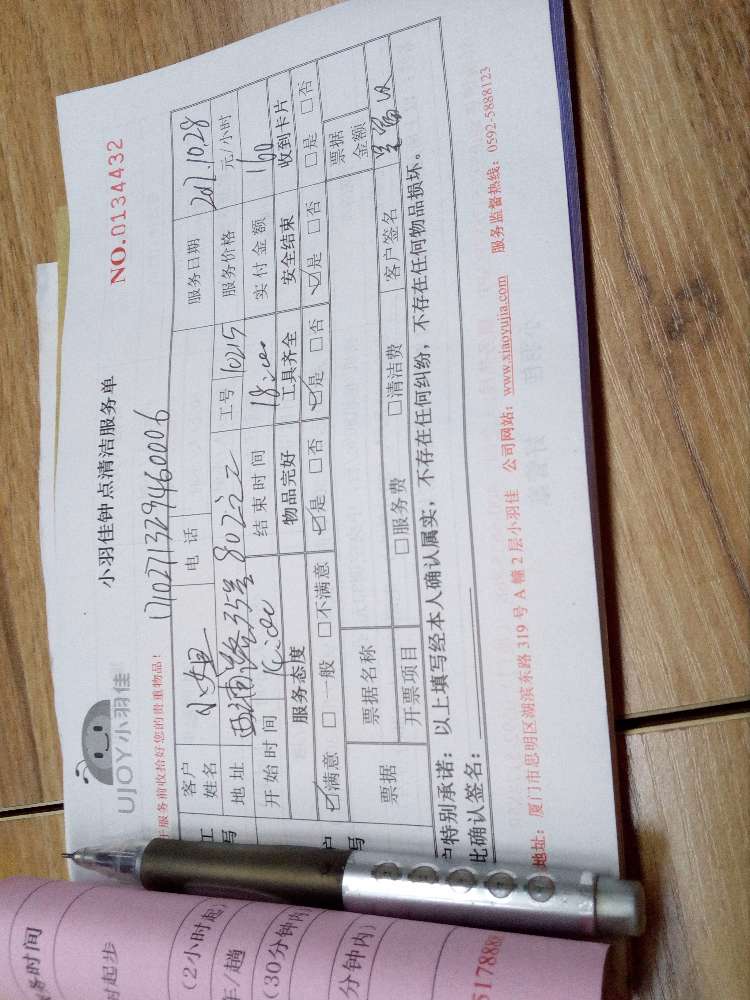 UJOY小羽佳
小羽佳钟点清洁服务单
NO.0134432
服务前收拾好您的贵重物品!
客户姓名 小姐 电话 服务日期
地址 工号 10215 服务价格 元/小时
开始时间 结束时间 18:00 实付金额
服务态度 物品完好 工具齐全 安全结束 收到卡片
☑满意 □一般 □不满意 ☑是 □否 ☑是 □否 ☑是 □否 □是 □否
票据 票据名称 票据金额
开票项目 □服务费 □清洁费 客户签名
户特别承诺:以上填写经本人确认属实,不存在任何纠纷,不存在任何物品损坏。
此确认签名:
地址:厦门市思明区湖滨东路 319 号 A 幢 2 层小羽佳 公司网站:www.xiaoyujia.com 服务监督热线:0592-5888123
务时间
时起步
(2小时起)
车/趟
(30分钟内)
分钟内)
517888